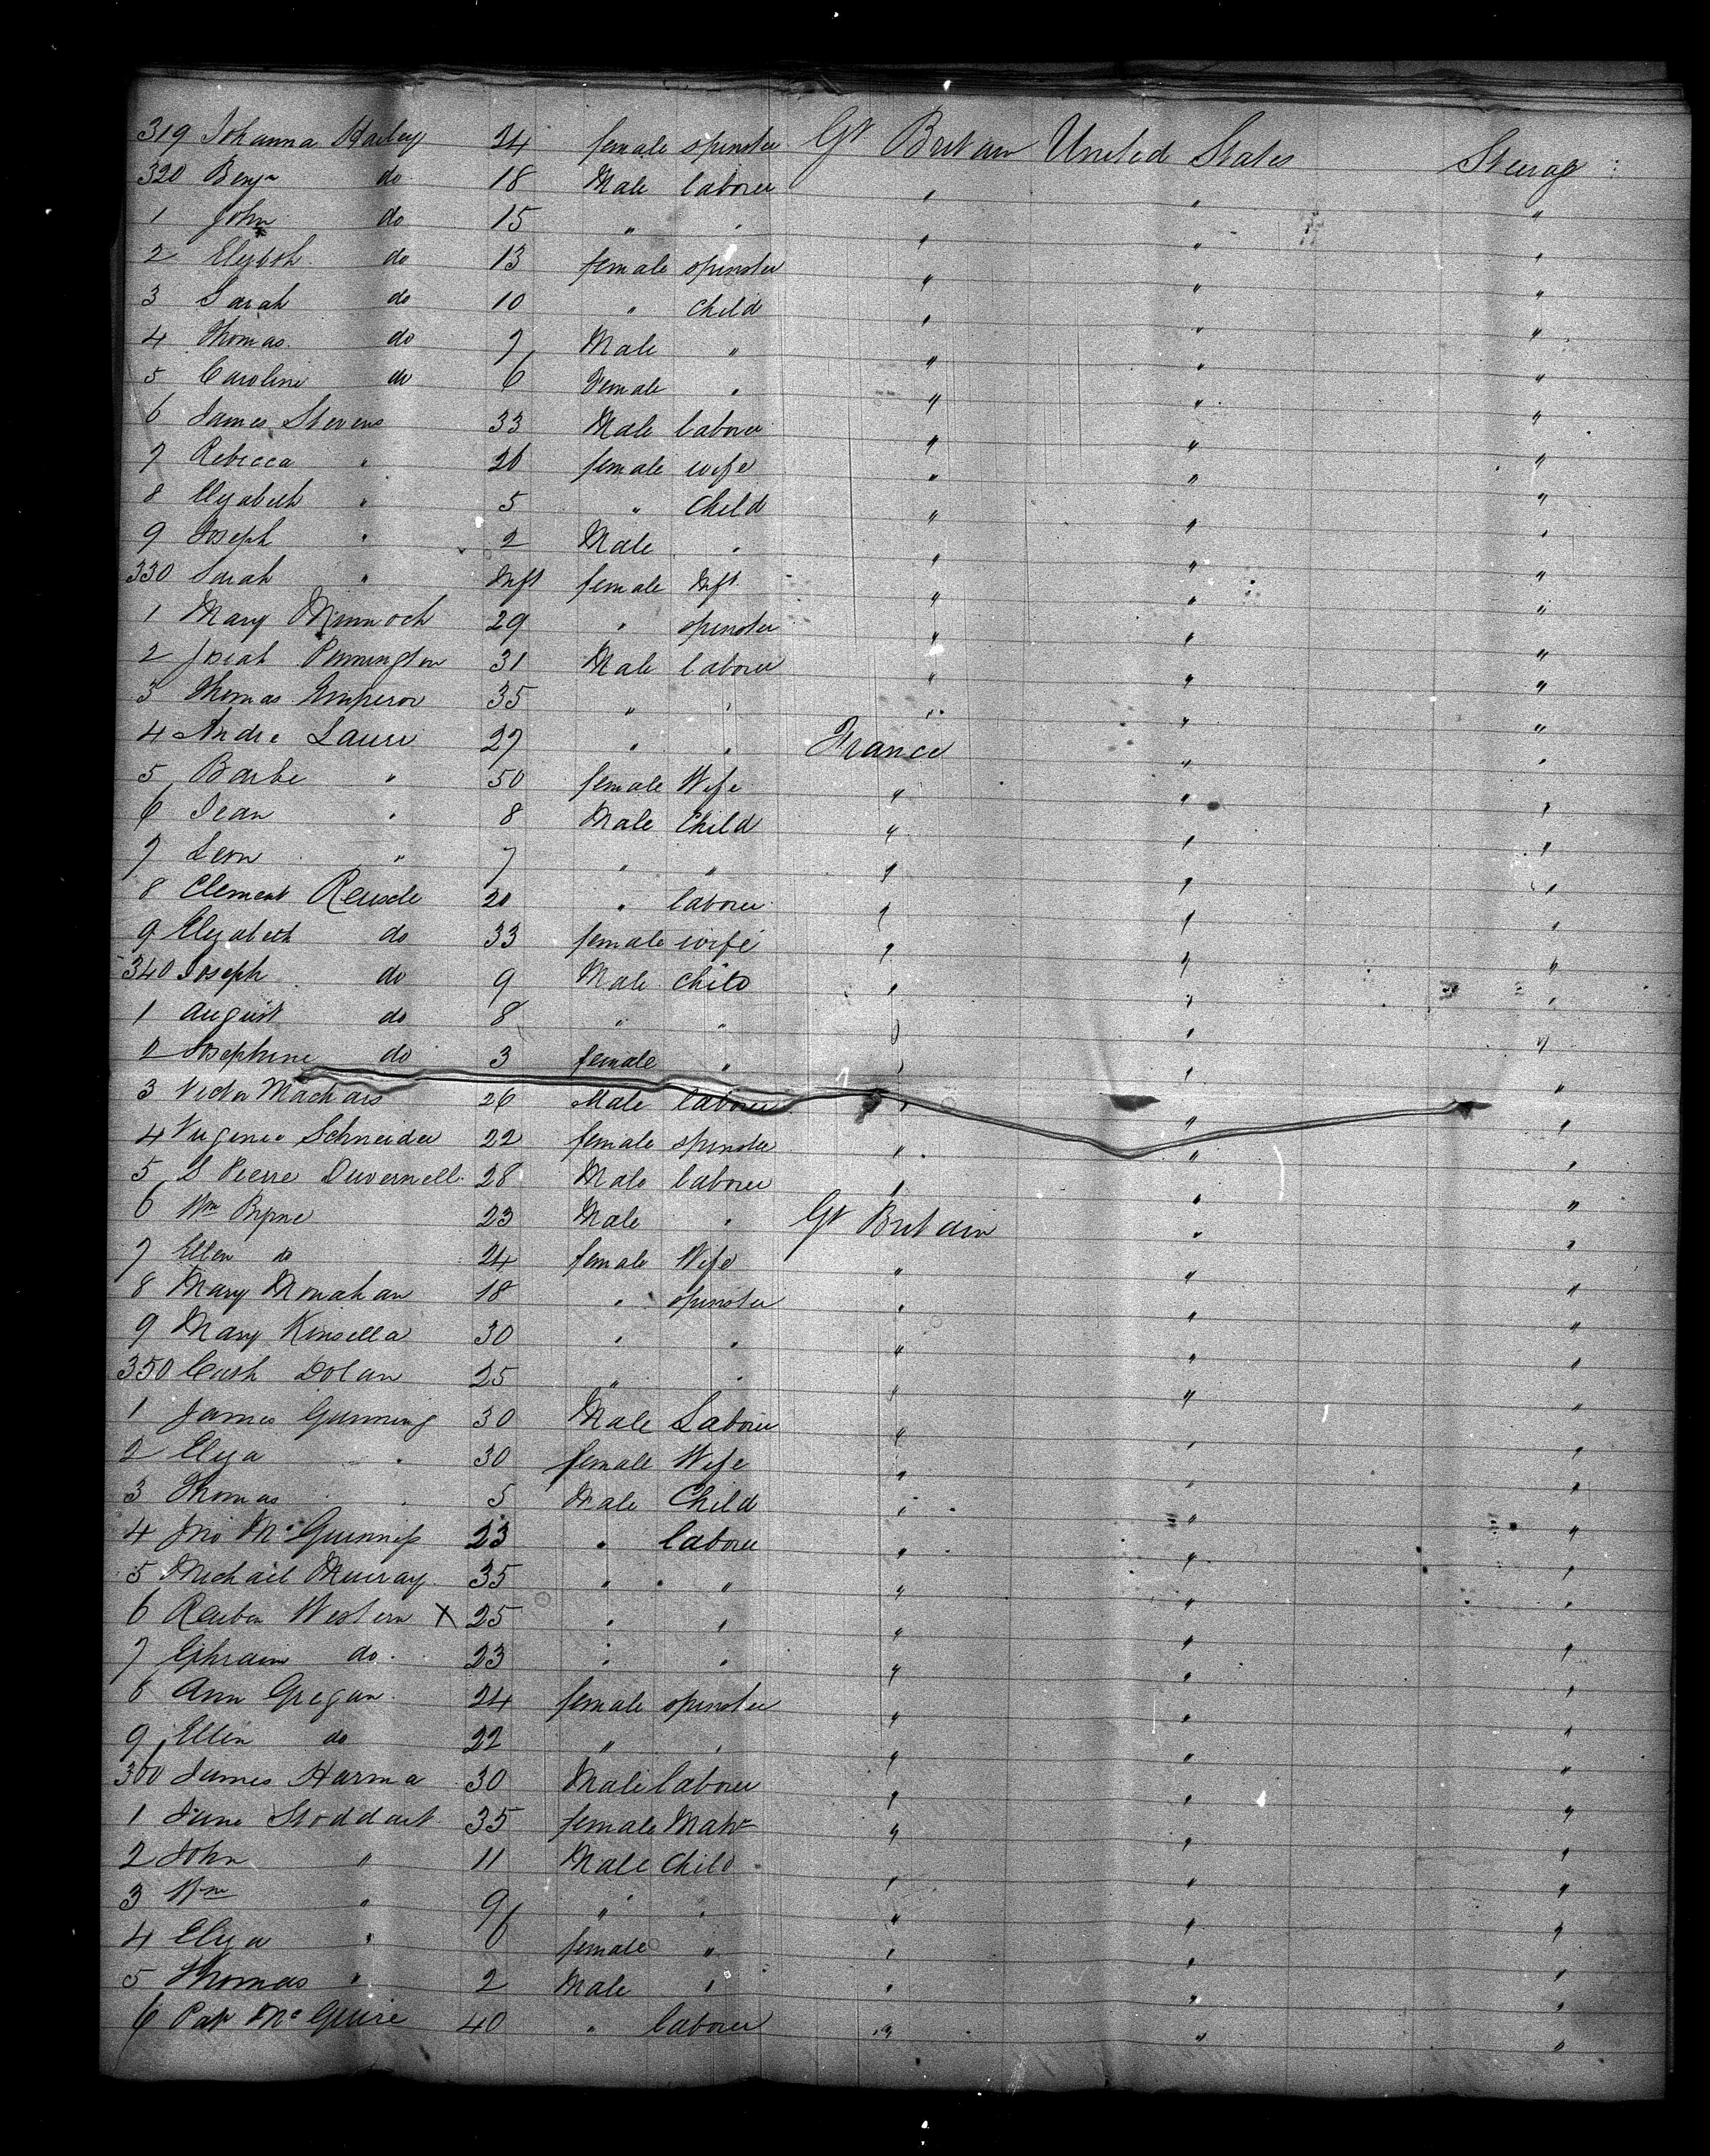 319 Johanna Harley 24 female spinster Gt Britain United States Steerage
320 Benjn do 18 Male laborer " " "
1 John do 15 " " " " "
2 Elizbth do 13 female spinster " " "
3 Sarah do 10 " Child " " "
4 Thomas do 7 Male " " " "
5 Caroline do 6 Female " " " "
6 James Stevens 33 Male laborer " " "
7 Rebecca " 26 female wife " " "
8 Elizabeth " 5 " Child " " "
9 Joseph " 2 Male " " " "
330 Sarah " Inft female Inft " " "
1 Mary Minnoch 29 " spinster " " "
2 Josiah Pennington 31 Male laborer " " "
3 Thomas Emperor 35 " " " " "
4 Andre Lauri 27 " " France " "
5 Barbe " 50 female Wife " " "
6 Jean " 8 Male Child " " "
7 Leon " 7 " " " " "
8 Clement 20 " laborer " " "
9 Elizabeth do 33 female wife " " "
340 Joseph do 9 Male child " " "
1 August do 8 " " " " "
2 Josephine do 3 female " " " "
3 Victor 26 Male laborer " " "
4 Virginie Schneider 22 female spinster " " "
5 Pierre Duvernell 28 Male laborer " " "
6 Wm Byrne 23 Male " Gt Britain " "
7 Ellen do 24 female Wife " " "
8 Mary Monahan 18 " spinster " " "
9 Mary Kinsella 30 " " " " "
350 Cath Dolan 25 " " " " "
1 James Gunning 30 Male Laborer " " "
2 Eliza " 30 female Wife " " "
3 Thomas " 5 Male Child " " "
4 Jno McGuinness 23 " laborer " " "
5 Michael Murray 35 " " " " "
6 Reuben Western X 25 " " " " "
7 Ephraim do 23 " " " " "
8 Ann Gregan 24 female spinster " " "
9 Ellen do 22 " " " " "
360 James Harma 30 Male laborer " " "
1 Jane Stoddart 35 female Matn " " "
2 John " 11 Male Child " " "
3 Wm " 9 " " " " "
4 Eliza " 6 female " " " "
5 Thomas " 2 Male " " " "
6 Pat McGuire 40 " laborer " " "